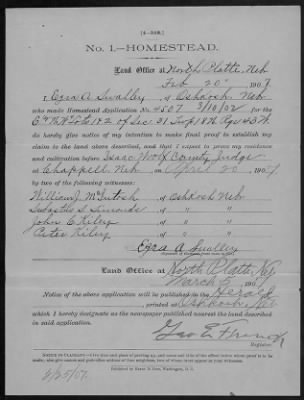 [4—348.]
No. 1.—HOMESTEAD.
Land Office at North Platte, Neb
Feb 20", 1907
I, Ezra A Swalley, of Oshkosh Neb
who made Homestead Application No. 4507 3/10/02 for the
of Sec. 31
do hereby give notice of my intention to make final proof to establish my
claim to the land above described, and that I expect to prove my residence
and cultivation before Isaac Woolf County Judge
at Chappell, Neb on April 20, 1907,
by two of the following witnesses:
William J. McIntosh, of Oshkosh Neb
S. Simonds, of "
John E Kiley, of "
Peter Kiley, of "
Ezra A Swalley
Land Office at North Platte, Neb
March 1907
Notice of the above application will be published in the Herald
printed at Oshkosh, Neb
which I hereby designate as the newspaper published nearest the land described
in said application.
Geo E French
Register.
Published by Henry N. Copp, Washington, D. C.